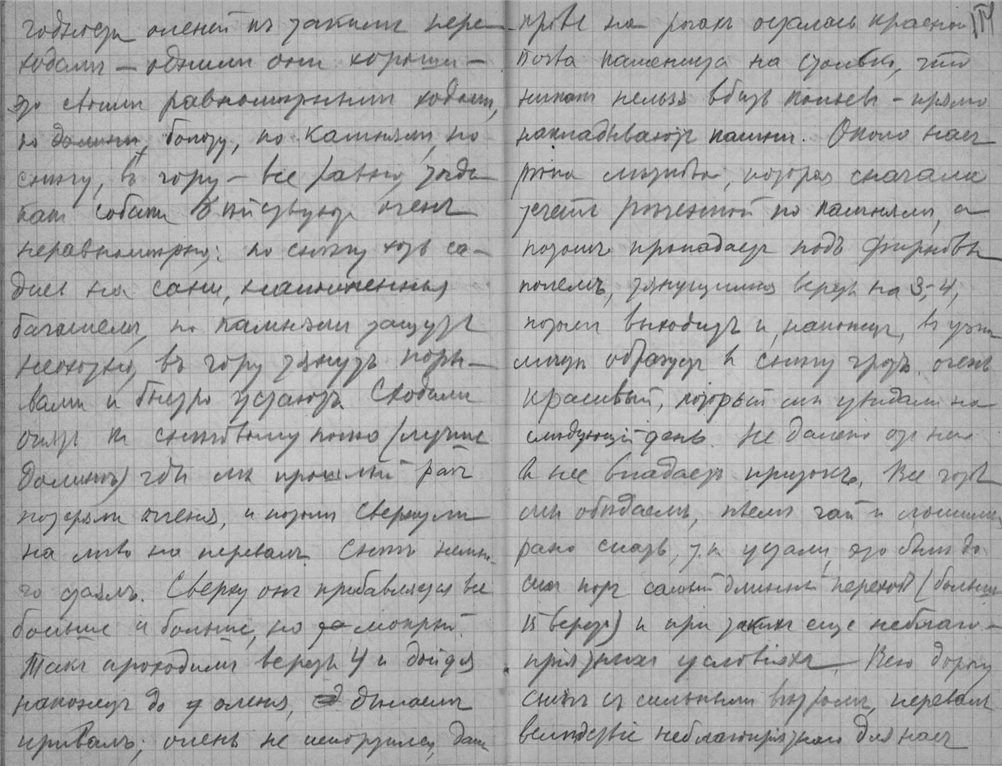 годности оленей къ такимъ пере-
ходамъ — одѣлили они хорошо —
это своимъ равномѣрнымъ ходомъ,
по болоту, по камнямъ, по
снѣгу, въ гору — все равно, тогда
какъ собаки дѣйствуютъ очень
неравномѣрно: по снѣгу хоть са-
дись на сани,
багажемъ, по камнямъ тащутъ
неохотно, въ гору тянутъ поры-
вами и быстро устаютъ. Сходили
опять къ снѣговому полю (лучше
долинѣ) гдѣ мы прошлый разъ
потеряли оленя, и потомъ свернули
на лѣво на перевалъ. Снѣгъ немно-
го стаялъ. Сверху онъ прибавляется все
больше и больше, но мокрый.
Такъ проходимъ верстъ 4 и дойдя
наконецъ до оленя, дѣлаемъ
привалъ; очень не испортился, даже
на рогахъ осталась красной
Почва каменистая на столько, что
нельзя вбить кольевъ — прямо
накладываютъ камни. Около насъ
рѣка, которая сначала
течетъ по камнямъ, а
потомъ пропадаетъ подъ фирновымъ
полемъ, тянущимся верстъ на 3, 4,
потомъ выходитъ и, наконецъ, въ
образуетъ въ снѣгу гротъ очень
красивый, который мы увидали на
слѣдующій день. Не далеко отъ насъ
въ нее впадаетъ притокъ. Все
мы обѣдаемъ, пьемъ чай и ложимся
рано спать, т.к. устали, это былъ до
сихъ поръ самый длинный переходъ (больше
15 верстъ) и при такихъ еще неблаго-
пріятныхъ условіяхъ. Всю дорогу
снѣгъ съ сильнымъ вѣтромъ, перевалъ
вслѣдствіе неблагопріятнаго для насъ